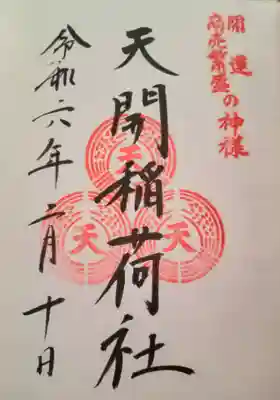 開運
商売繁盛の神様
天開稲荷社
天
天
天
令和六年二月十日